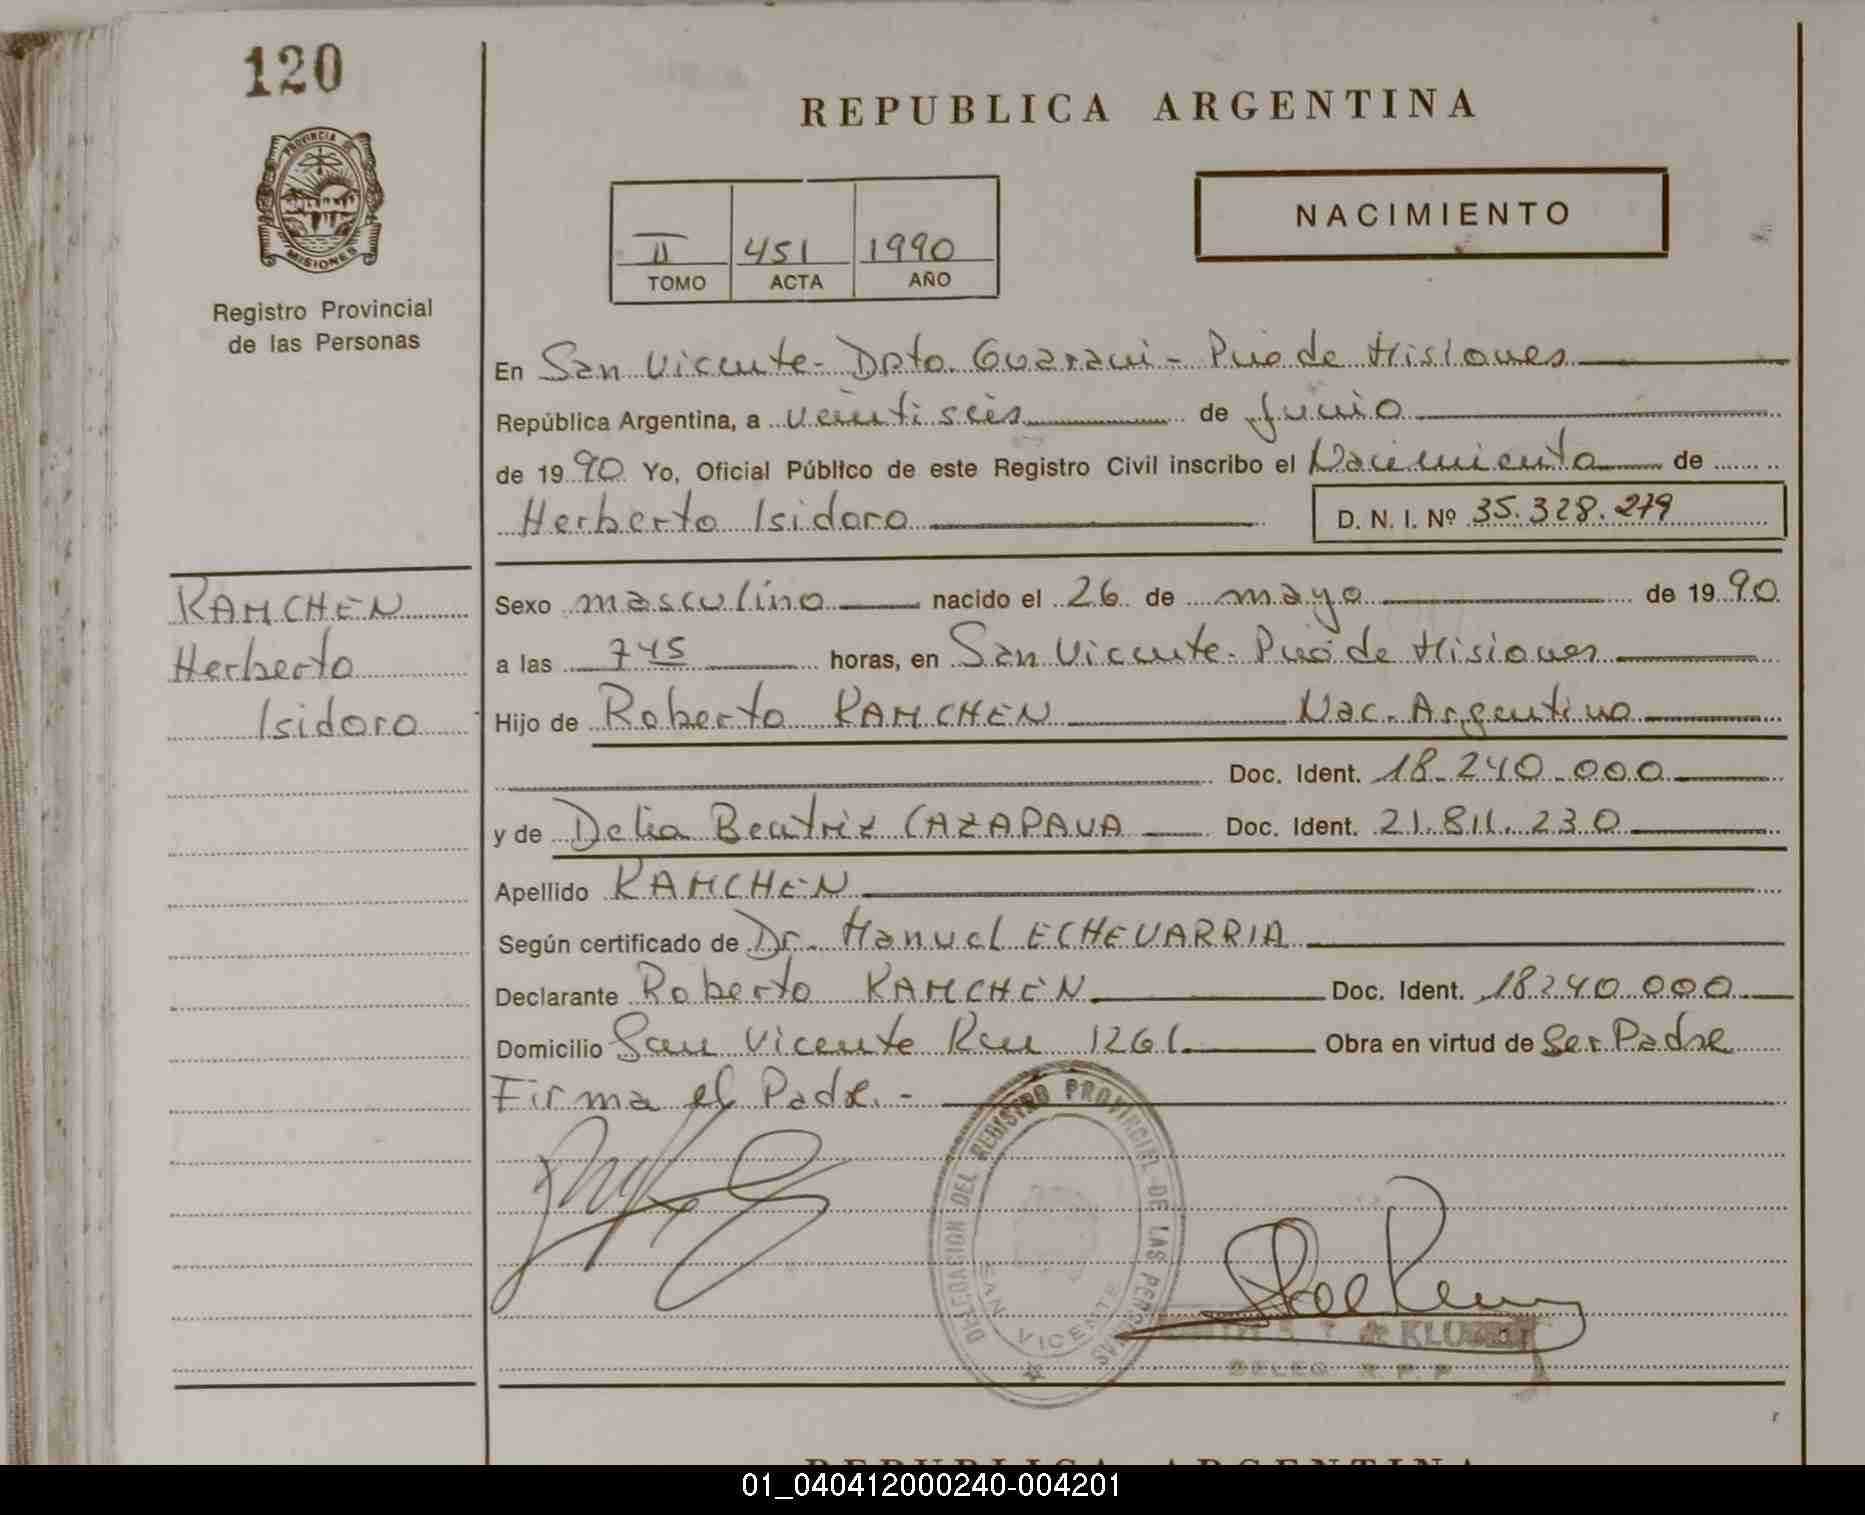 120
REPUBLICA ARGENTINA
PROVINCIA DE MISIONES
Registro Provincial
de las Personas
II 451 1990
TOMO ACTA AÑO
NACIMIENTO
En San Vicente - Dpto. Guarani - Pcia de Misiones
República Argentina, a veintiseis de Junio
de 1990 Yo, Oficial Público de este Registro Civil inscribo el Nacimiento de
Herberto Isidoro D. N. I. Nº 35.328.279
KAMCHEN
Herberto
Isidoro
Sexo masculino nacido el 26 de mayo de 1990
a las 7 45 horas, en San Vicente - Pcia de Misiones
Hijo de Roberto KAMCHEN Nac. Argentino
Doc. Ident. 18.240.000
y de Delia Beatriz CAZAPAVA Doc. Ident. 21.811.230
Apellido KAMCHEN
Según certificado de Dr. Manuel ECHEVARRIA
Declarante Roberto KAMCHEN Doc. Ident. 18240.000
Domicilio San Vicente Km 1261 Obra en virtud de Ser Padre
Firma el Padre. -
DELEGACION DEL REGISTRO PROVINCIAL DE LAS PERSONAS
SAN VICENTE
de KLUBER
DELEG. R. P. P
REPUBLICA ARGENTINA
01_040412000240-004201